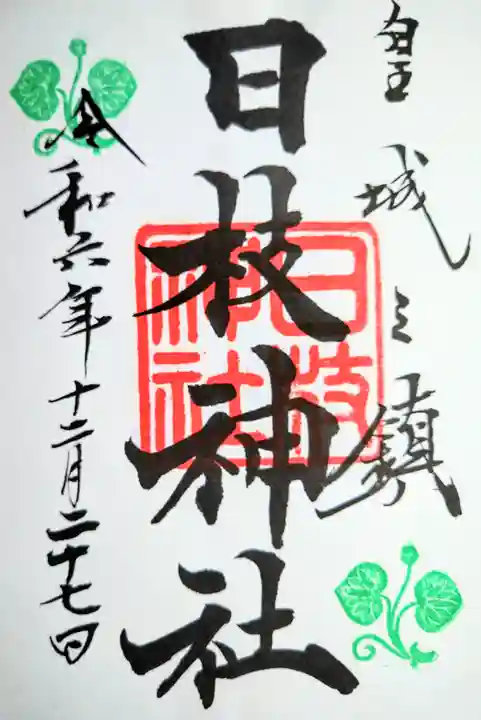 皇城之鎮
日枝神社
日枝神社
令和六年十二月二十七日